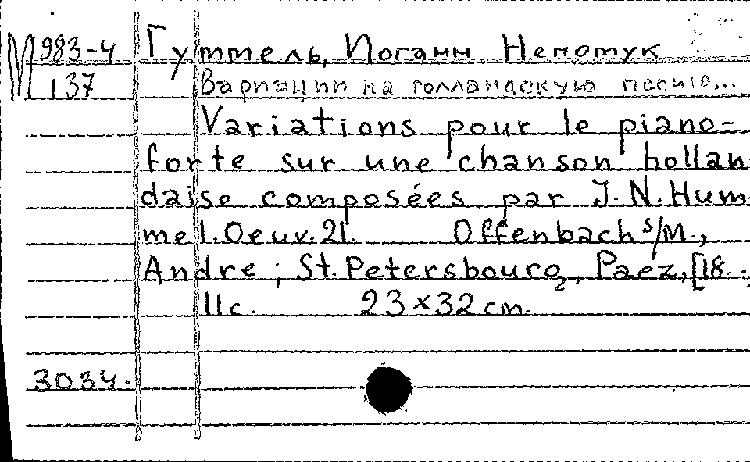 М 983-4
137
Гуммель, Иоганн Непомук
Вариации на голландскую песню...
Variations pour le piano=
forte sur une chanson hollan
daise composées par J. N. Hum
mel. Oeuv. 21. Offenbach s/M.,
Andre ; St. Petersbourg, Paez, [18..
11 с. 23×32 cm.
3034.